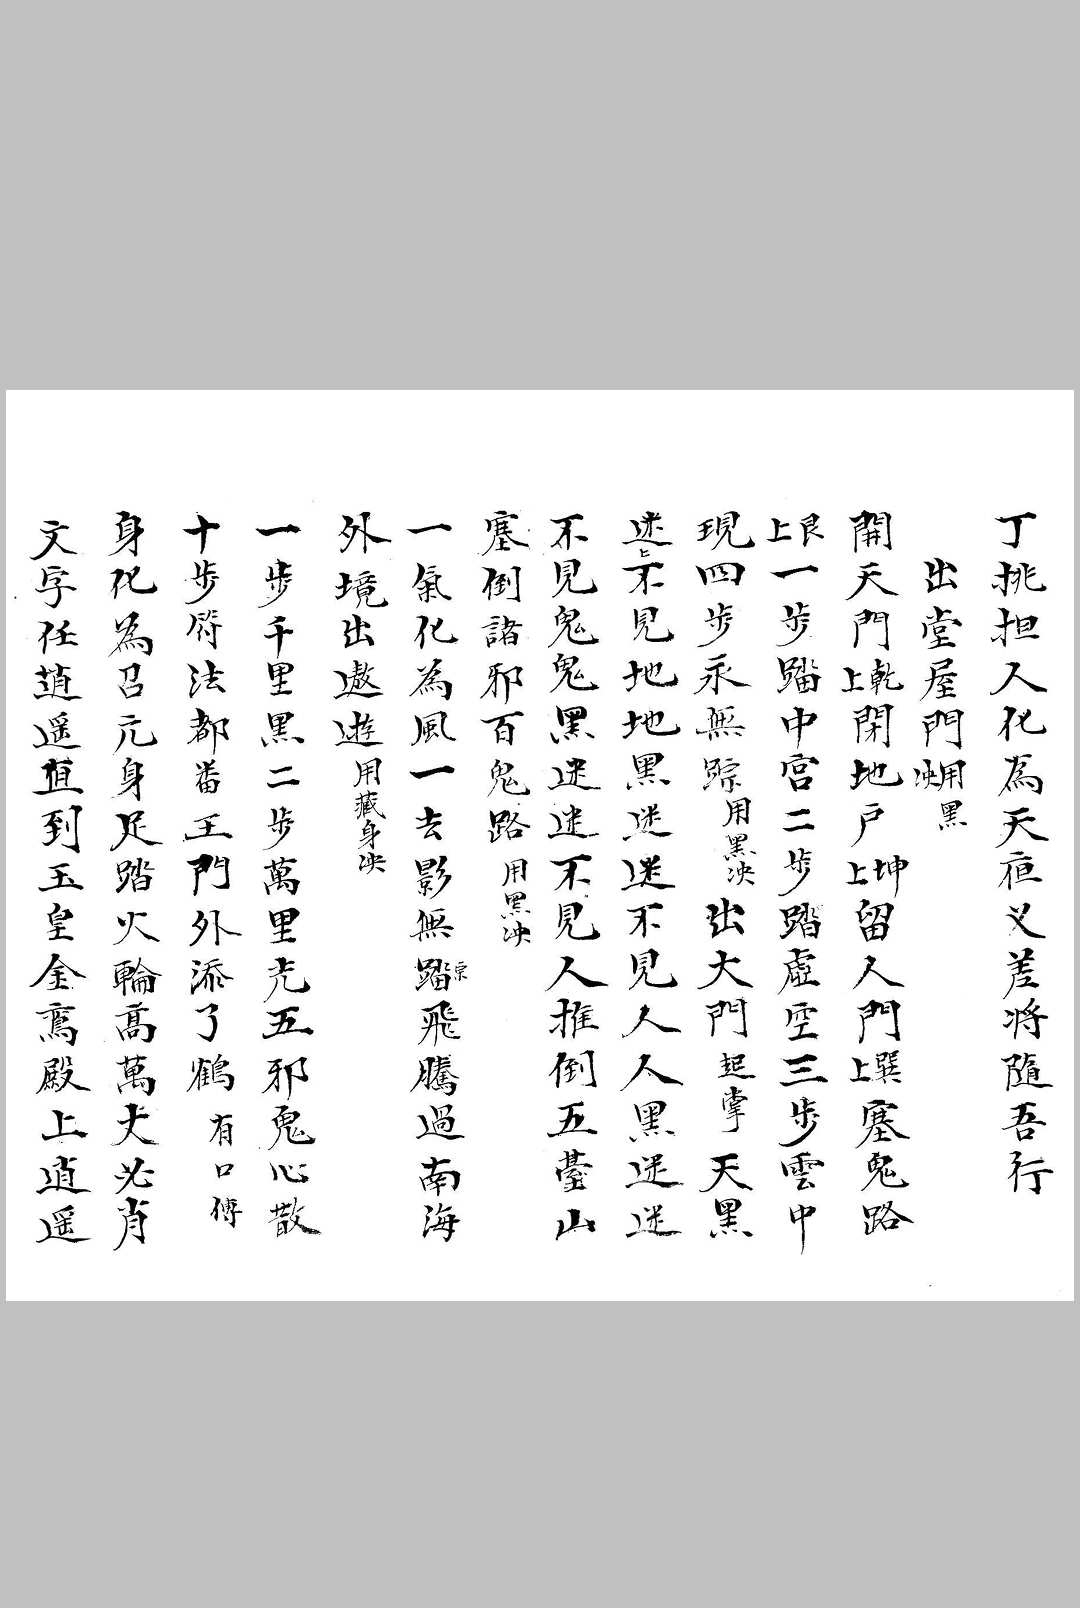 丁挑担人化為天疸义差将隨吾行
出堂屋門用黑泱
開天門乾上閉地户坤上留人門撰上塞鬼路
艮上一步踏中宫二步踏虛空三步雲中
現四步永無踪用黑泱出大門起掌天黑
迷上不見地地黑迷迷不見人人黑迷迷
不見鬼鬼黑迷迷不見人推倒五臺山
塞倒諸邪百鬼路用黑泱
一氣化為風一去影無踏宗飛騰過南海
外境出遨遊用藏身泱
一步千里黑二步萬里光五邪鬼心散
十步符法都番王門外添了鶴有口傅
身化為召元身足踏火輪高萬丈必肖
文字任逍遥直到玉皇金鸞殿上逍遥